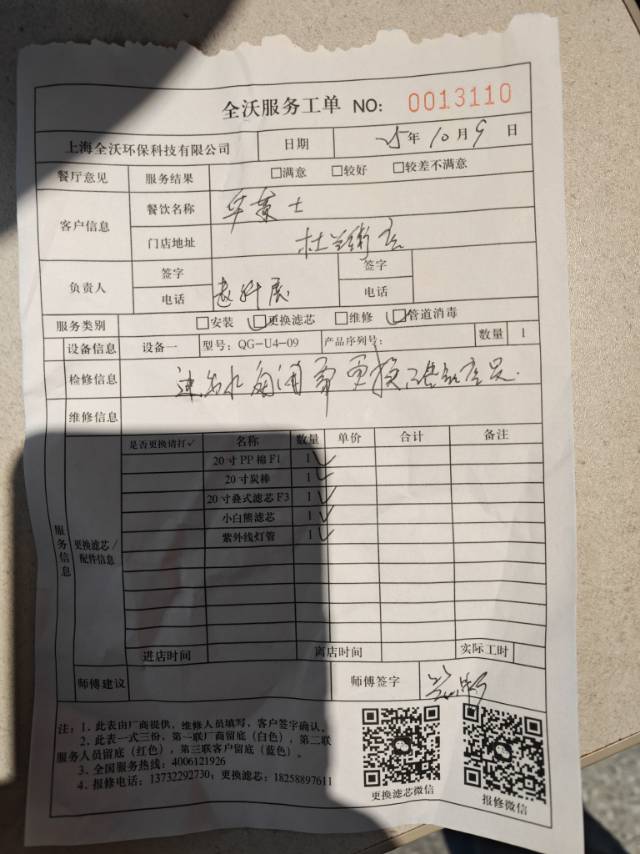 全沃服务工单 NO: 0013110
上海全沃环保科技有限公司 日期 25年10月9日
餐厅意见 服务结果 □满意 □较好 □较差不满意
客户信息 餐饮名称 华莱士
门店地址 杜兰街店
负责人 签字 签字
电话 赵科展 电话
服务类别 □安装 □更换滤芯 □维修 □管道消毒
设备信息 设备一 型号: QG-U4-09 产品序列号: 数量 1
检修信息 更换
维修信息
服务信息 更换滤芯/配件信息 是否更换请打✓ 名称 数量 单价 合计 备注
20寸PP棉F1 1 ✓
20寸炭棒 1 ✓
20寸叠式滤芯F3 1 ✓
小白熊滤芯 1 ✓
紫外线灯管 1 ✓
进店时间 离店时间 实际工时
师傅建议 师傅签字
注: 1. 此表由厂商提供，维修人员填写，客户签字确认。
2. 此表一式三份，第一联厂商留底（白色），第二联
服务人员留底（红色），第三联客户留底（蓝色）。
3. 全国服务热线: 4006121926
4. 报修电话: 13732292730; 更换滤芯: 18258897611
更换滤芯微信 报修微信